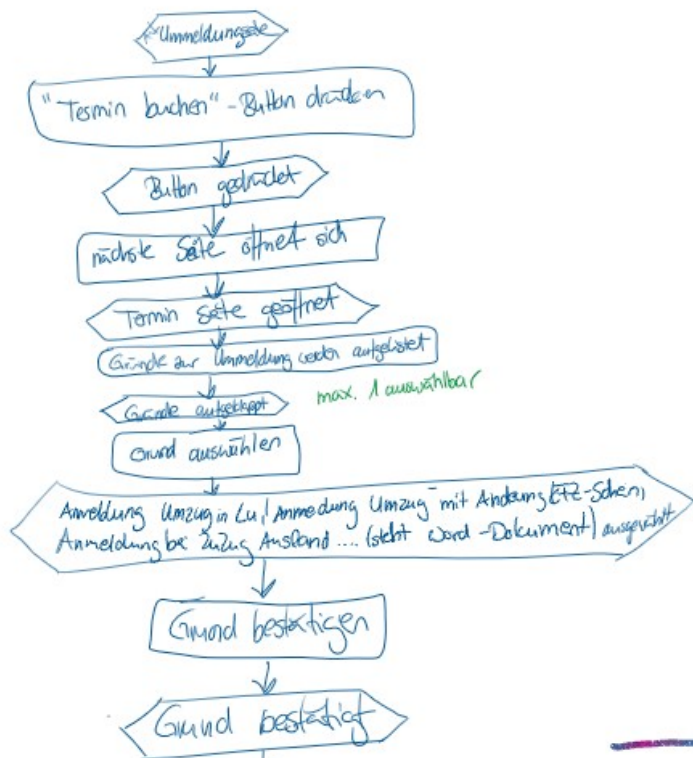 Ummeldungsseite
"Termin buchen" - Button drücken
Button gedrückt
nächste Seite öffnet sich
Termin Seite geöffnet
Gründe zur Ummeldung werden aufgelistet
max. 1 auswählbar
Gründe aufgeklappt
Grund auswählen
Anmeldung Umzug in Lu, Anmeldung Umzug mit Änderung KFZ-Schein,
Anmeldung bei Zuzug Ausland .... (steht Word-Dokument) ausgewählt
Grund bestätigen
Grund bestätigt